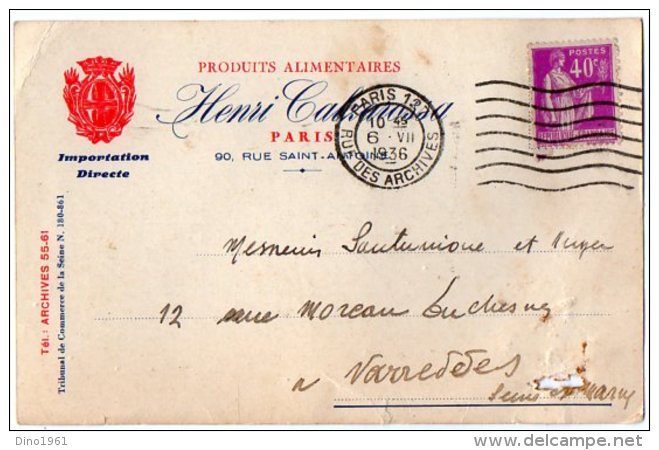 PRODUITS ALIMENTAIRES
Henri
PARIS
90, RUE SAINT-ANTOINE
Importation
Directe
Tél.: ARCHIVES 55-61
Tribunal de Commerce de la Seine N. 180-861
POSTES
40c
PARIS
10 45
6 VII
1936
RUE DES ARCHIVES
Messieurs et
12 rue Moreau Duchesne
a Varreddes
Seine et Marne
Dino1961